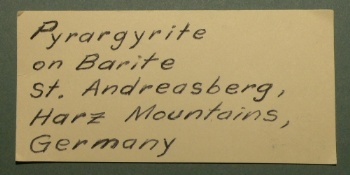 Pyrargyrite
on Barite
St. Andreasberg,
Harz Mountains,
Germany